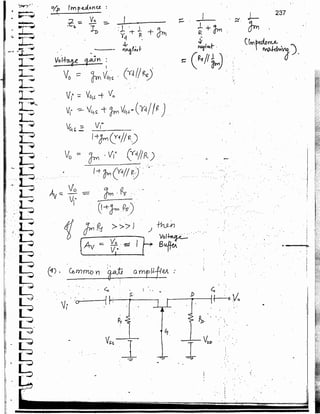 237
O/p Impedance :
Z₀ = V₀ / I_D = 1 / (1/r_d + 1/R + g_m) = 1 / (1/R + g_m) ≃ 1 / g_m
neglect
neglect
(Impedance matching).
= (R_s // 1/g_m)
Voltage gain :
V₀ = g_m V_gs . (r_d // R_s)
V_i = V_gs + V₀
V_i = V_gs + g_m V_gs . (r_d // R)
V_gs = V_i / (1 + g_m (r_d // R))
V₀ = g_m . V_i (r_d // R) / (1 + g_m (r_d // R))
A_v = V₀ / V_i = g_m . R_s / (1 + g_m R_s)
if g_m R_s >>> 1 , then
A_v = V₀ / V_i ≃ 1 → Voltage Buffer
(4). Common gate amplifier :
V_i C_c S D C_c V₀
R_s G R_D
V_SS V_DD